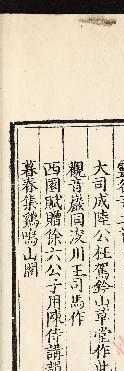 大司成陸公枉駕鈐山草堂作此
觀音巖同凌川王司馬作
西園賦贈徐六公子用陳侍講韻
暮春集鷄鳴山閣